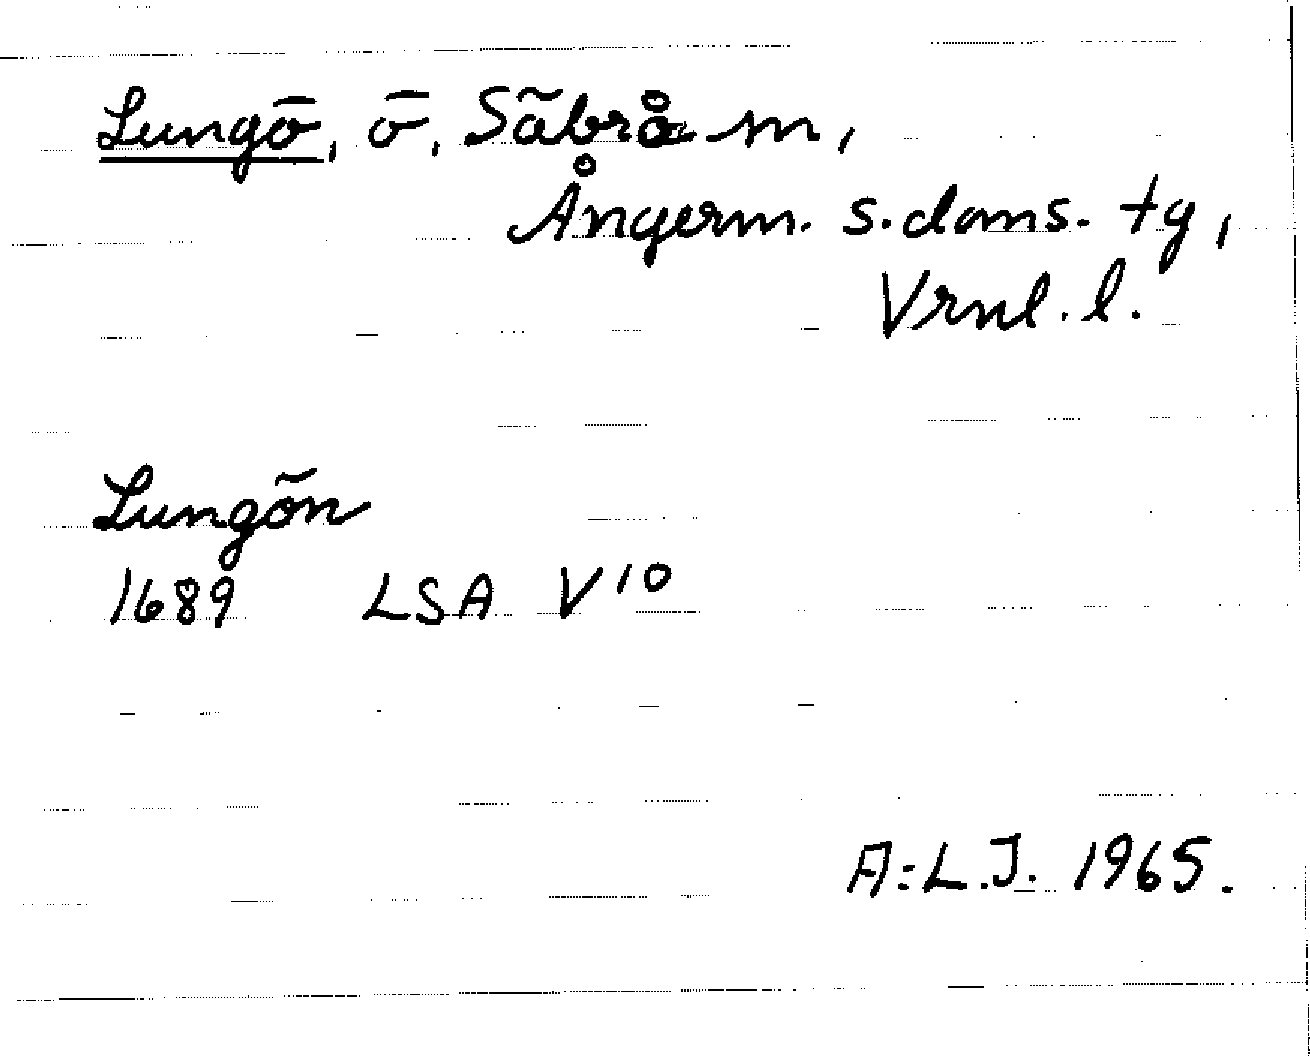 Lungö, ö, Säbrå sn,
Ångerm. s. doms. tg,
Vrnl. l.
Lungön
1689 LSA V10
A:L.J. 1965.